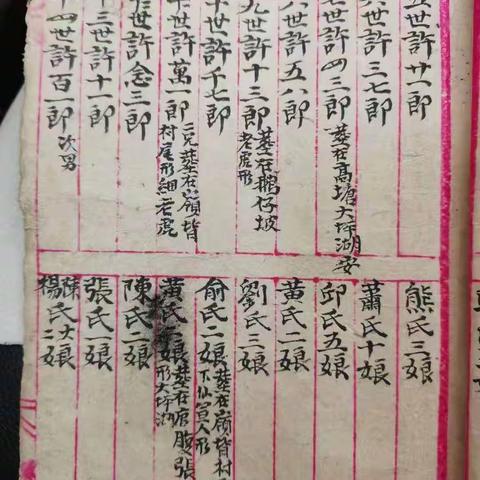 五世許廿一郎
六世許三七郎
世許四三郎
葬在高塘大坪湖安
八世許五八郎
九世許十三郎
葬在鵝仔坡
老虎形
十世許千七郎
世許萬一郎
葬在嶺背
村尾形細老虎
世許念三郎
十三世許十一郎
十四世許百一郎
次男
熊氏三娘
蕭氏十娘
邱氏五娘
黄氏一娘
劉氏三娘
俞氏二娘
葬在嶺背村
下仙人形
黄氏娘
葬在張
形大坪湖
陳氏二娘
張氏一娘
陳氏大娘
楊氏二娘